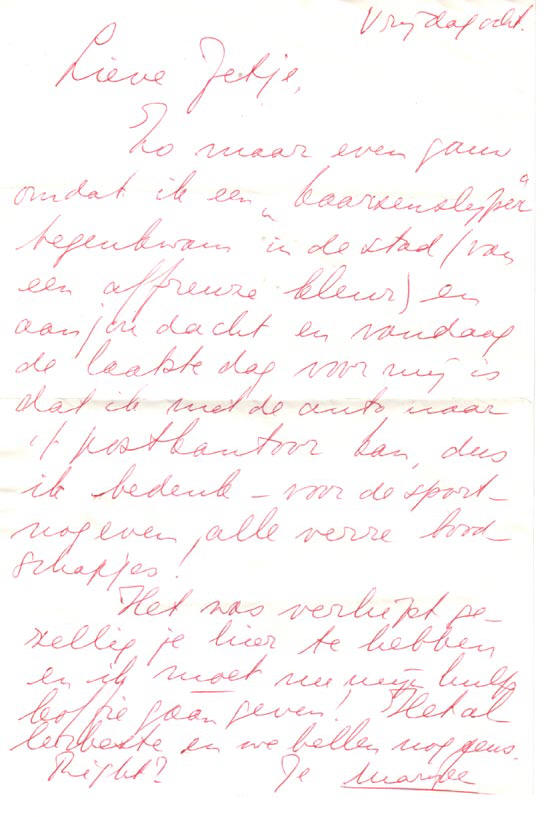 Vrijdagocht.
Lieve Jetje,
Zo maar even gauw
omdat ik een „kaarsenslijper"
tegenkwam in de stad (van
een affreuze kleur) en
aan jou dacht en vandaag
de laatste dag voor mij is
dat ik met de auto naar
't postkantoor kan, dus
ik bedenk – voor de sport –
nog even alle verre bood-
schapjes!
Het was verhipt ge-
zellig je hier te hebben
en ik moet nu mijn hulp
koffie gaan geven! Het al-
lerbeste en we bellen nog eens.
Right? Je